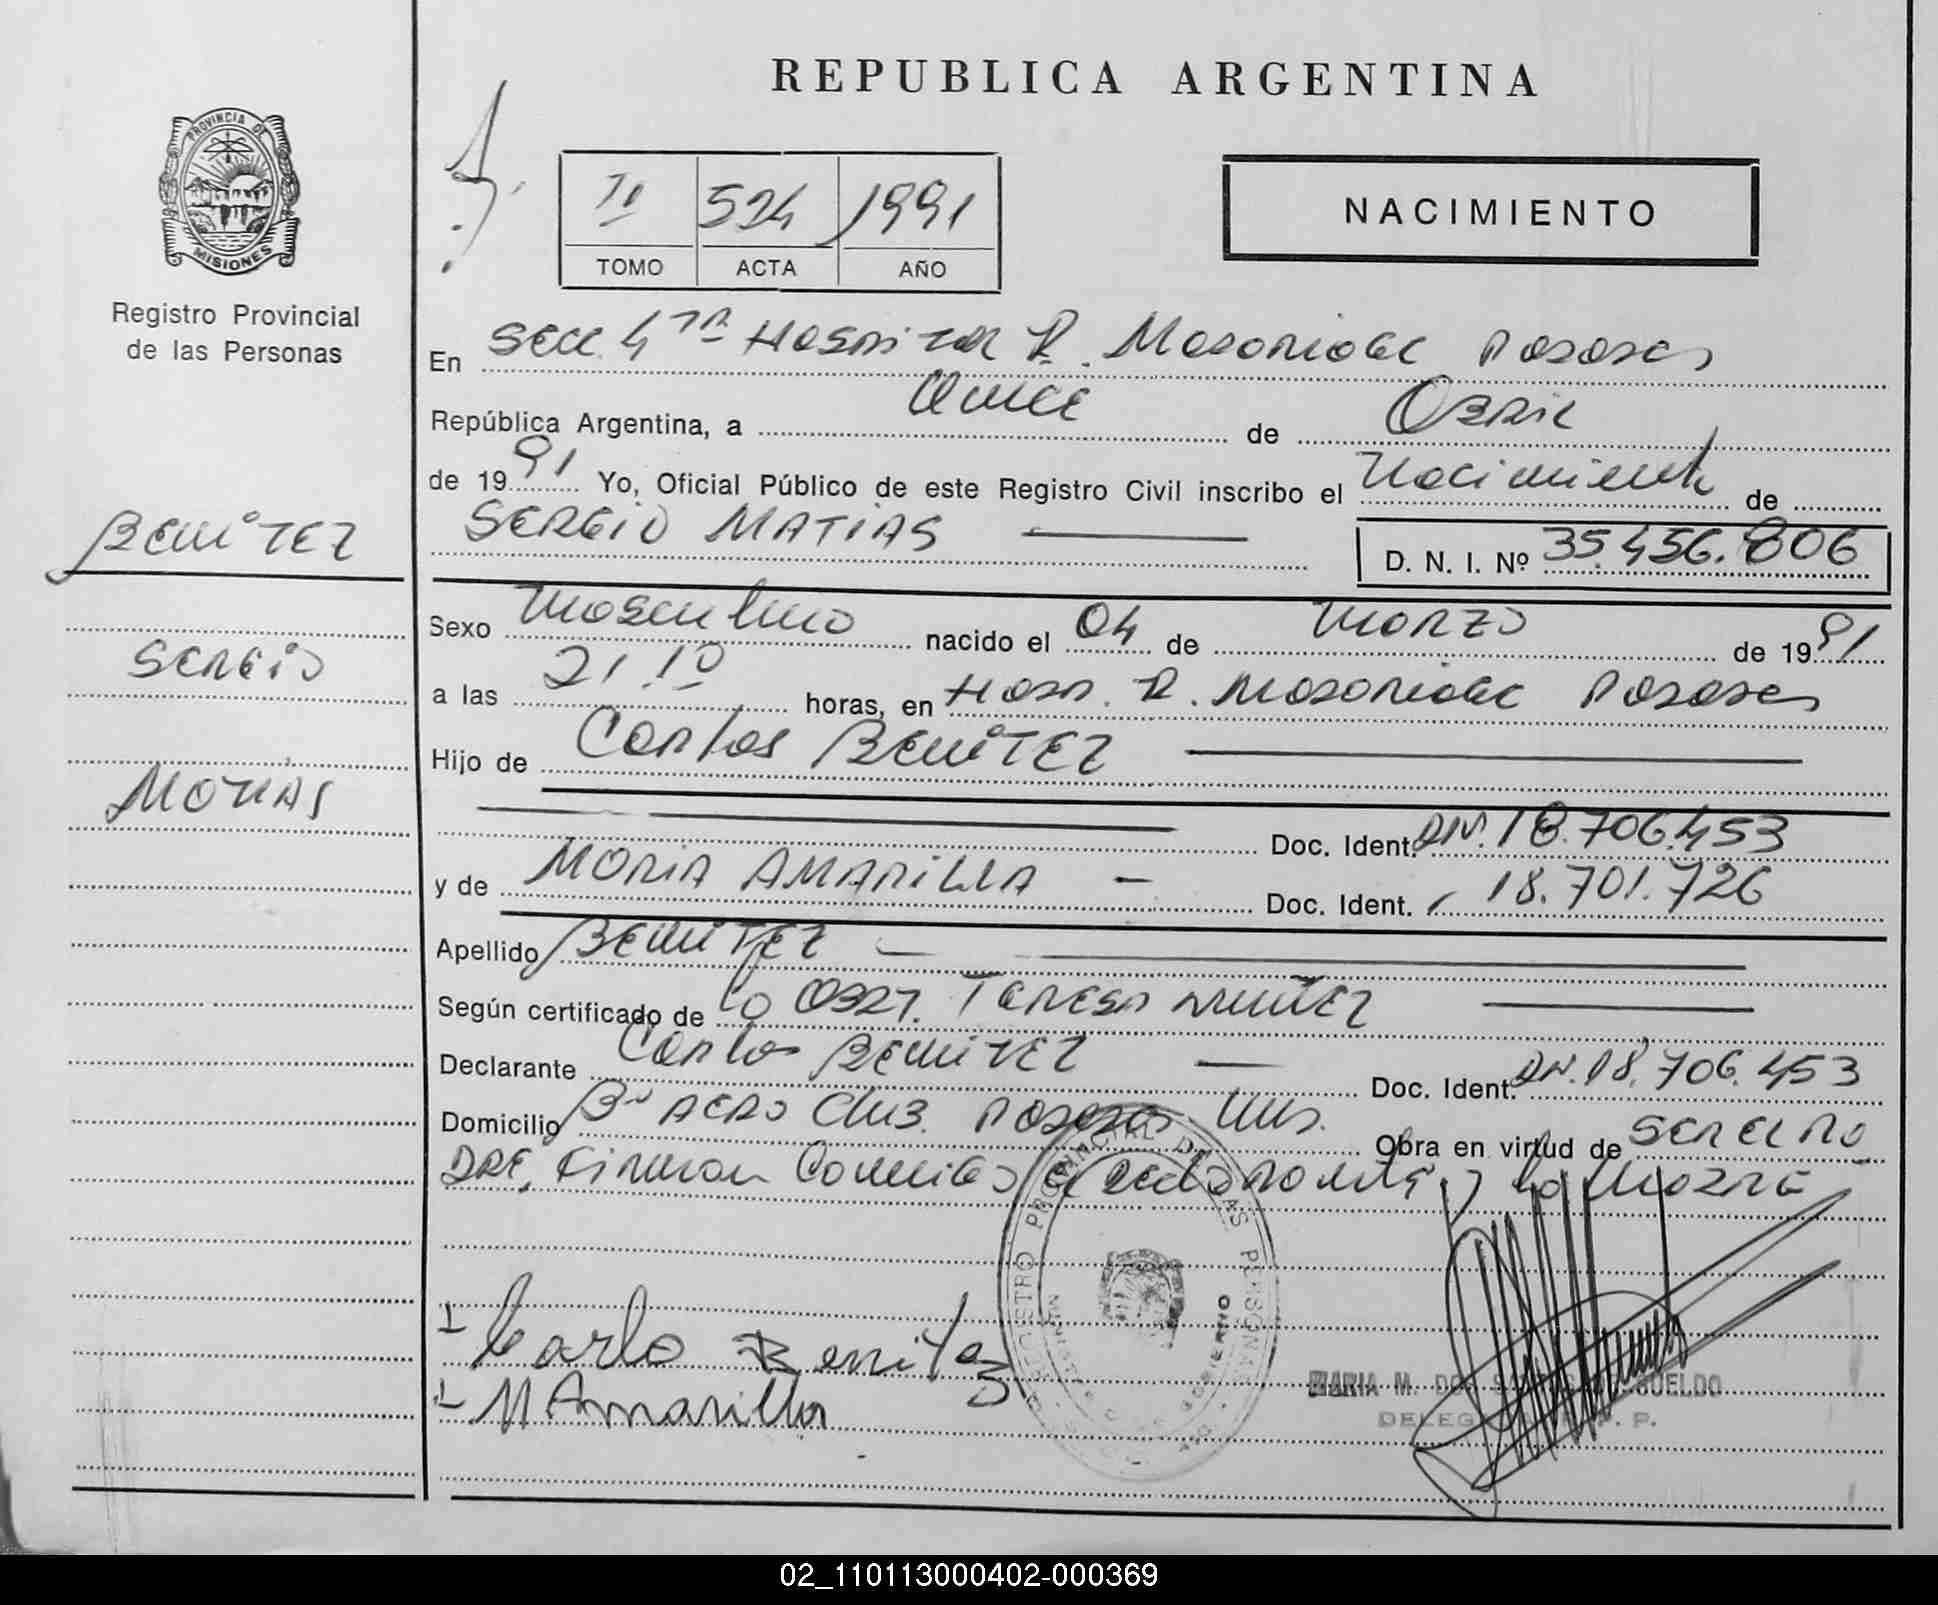 REPUBLICA ARGENTINA
PROVINCIA DE MISIONES
Registro Provincial
de las Personas
Tº 524 1991
TOMO ACTA AÑO
NACIMIENTO
En Secc. 4ta Hospital R. Madariaga Posadas
República Argentina, a Once de Abril
de 1991 Yo, Oficial Público de este Registro Civil inscribo el Nacimiento de
SERGIO MATIAS D. N. I. Nº 35.456.806
BENITEZ
SERGIO
MATIAS
Sexo Masculino nacido el 04 de Marzo de 1991
a las 21.10 horas, en Hosp. R. Madariaga Posadas
Hijo de Carlos BENITEZ
Doc. Ident. DNI. 18.706.453
y de MARIA AMARILLA - Doc. Ident. 18.701.726
Apellido BENITEZ
Según certificado de la Obst. Teresa Nuñez
Declarante Carlos BENITEZ Doc. Ident. DNI. 18.706.453
Domicilio Bº Aero Club. Posadas Mns. Obra en virtud de ser el pa
dre. Firman conmigo el declarante y la madre
Carlo Benitez
M Amarilla
REGISTRO PROVINCIAL DE LAS PERSONAS
MINISTERIO DE GOBIERNO
MARIA M. DOS SANTOS DE GUELDO
DELEGADA R. P. P.
02_110113000402-000369